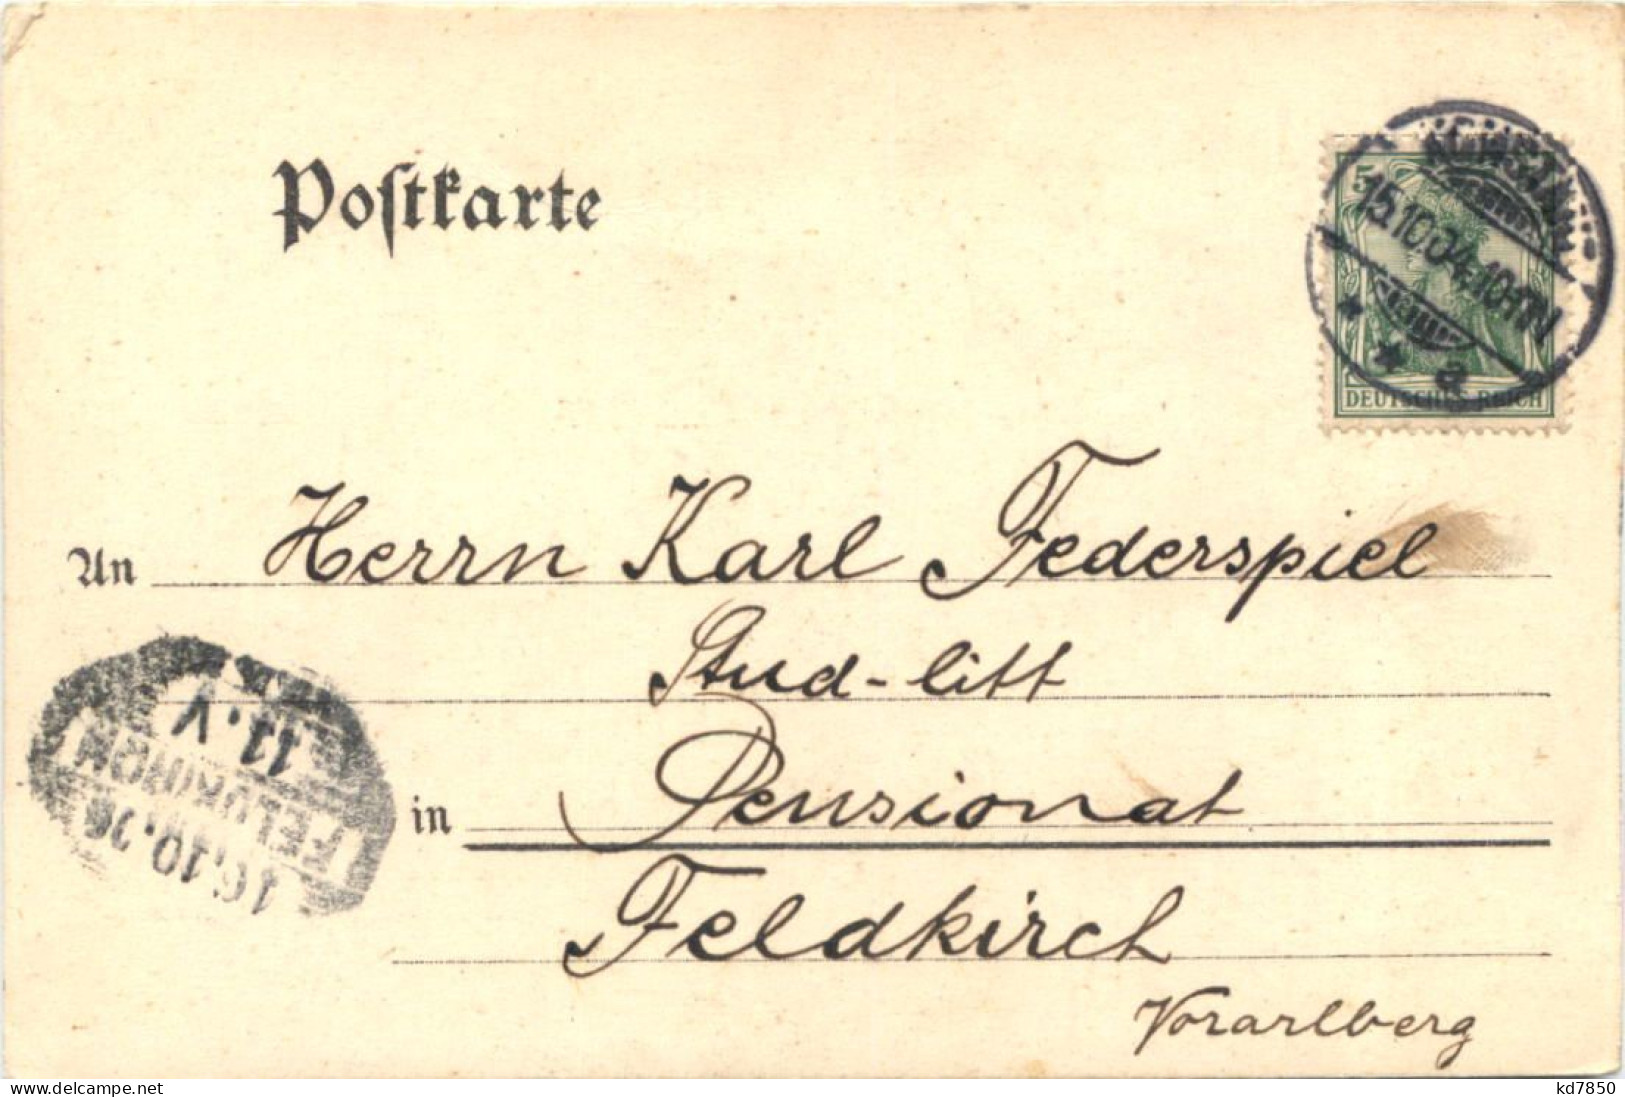 Postkarte
5
15.10.04. 10-11N
a
DEUTSCHES REICH
An Herrn Karl Federspiel
Stud-litt
in Pensionat
Feldkirch
Vorarlberg
11.V
FELDKIRCH
16.10.
www.delcampe.net
kd7850